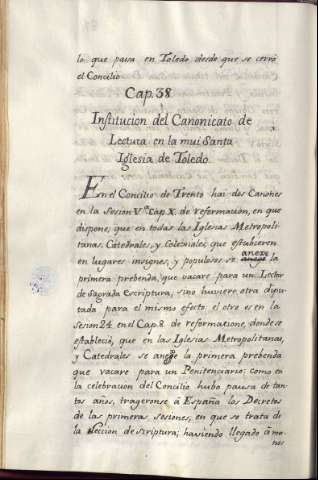 lo que pasa en Toledo desde que se cerró
el Concilio
Cap. 38
Institucion del Canonicato de
Lectura en la mui Santa
Iglesia de Toledo.
En el Concilio de Trento hai dos Canones
en la Sesion V.ta Cap. X. de reformacion, en que
dispone, que en todas las Iglesias Metropoli-
tanas Catedrales, y Colexiales, que estubieren
en lugares insignes, y populosos se anexe la
primera prebenda, que vacare para un Lector
de Sagrada Escriptura, sino huviere otra dipu-
tada para el mismo efecto: el otro es en la
Sesion 24. en el Cap. 8. de reformatione, donde se
estableció, que en las Iglesias Metropolitanas,
y Catedrales se anege la primera prebenda
que vacare para un Penitenciario: como en
la celebracion del Concilio hubo pausa de tan-
tos años, tragerense à España los Decretos
de las primeras sesiones, en que se trata de
la Leccion de Scriptura; haviendo llegado à ma-
nos